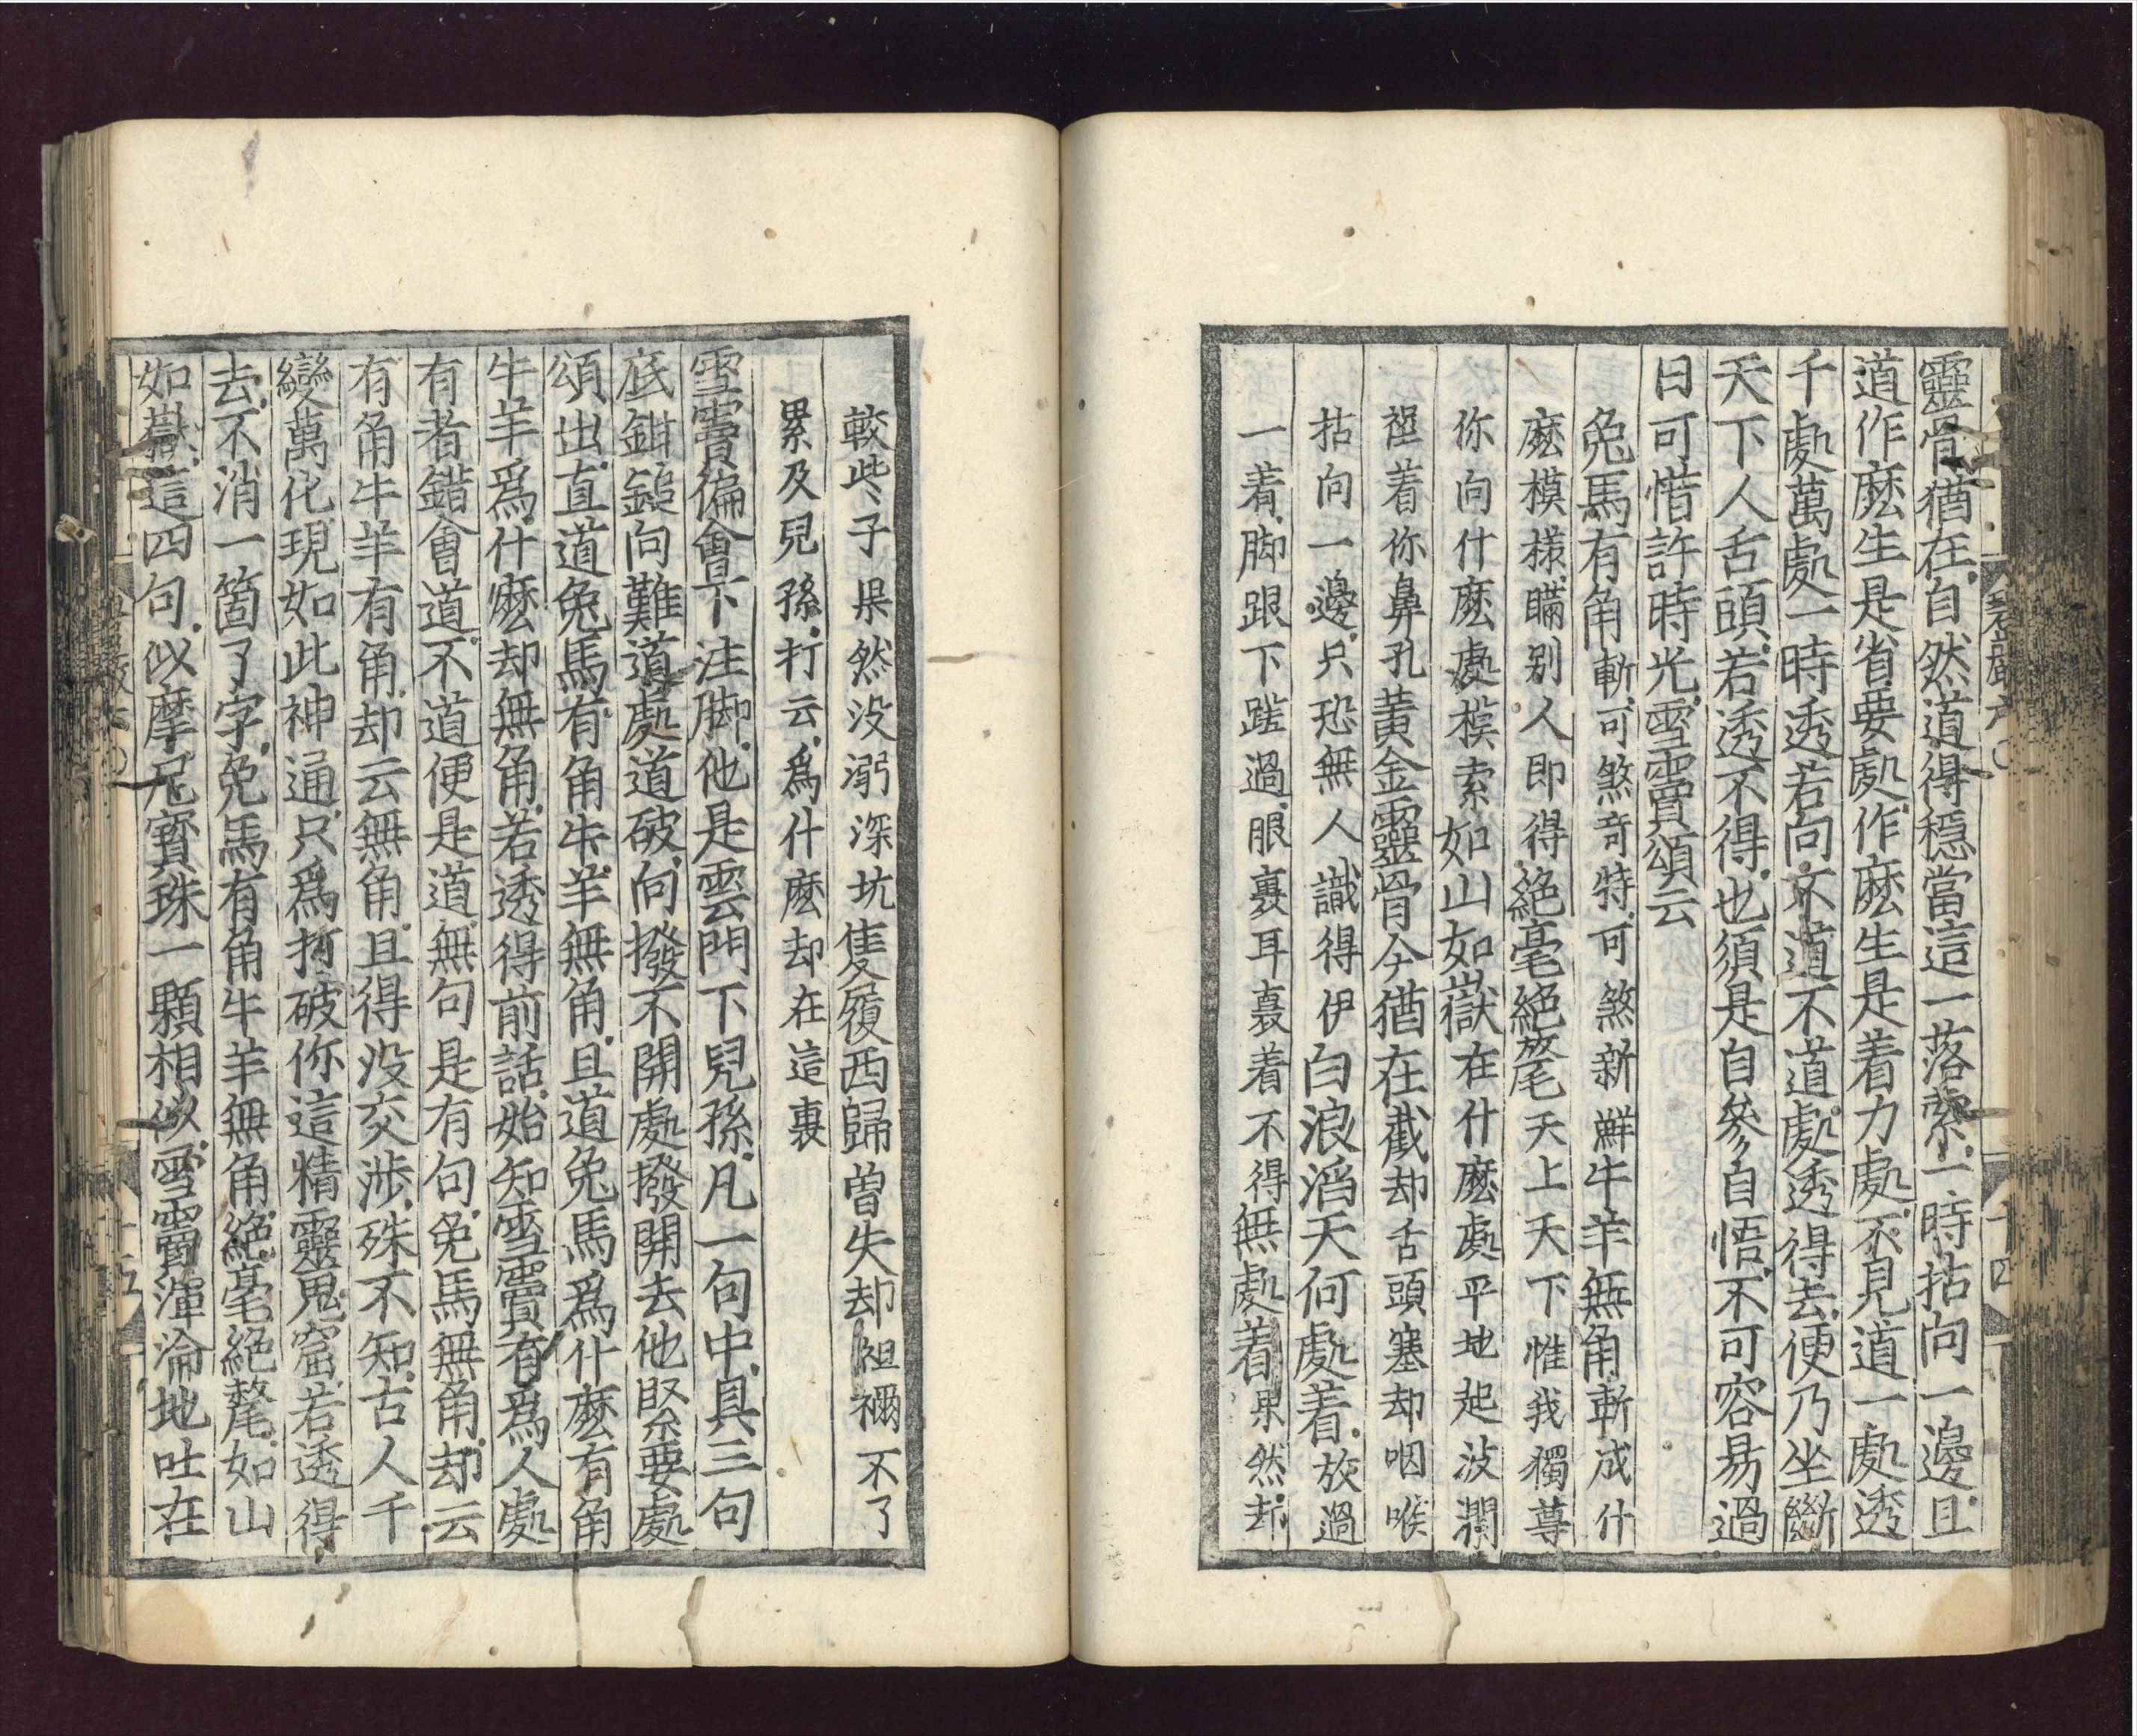 靈骨猶在自然道得穩當這一落索一時拈向一邊且
道作麽生是省要處作麽生是着力處不見道一處透
千處萬處一時透若向不道不道處透得去便乃坐斷
天下人舌頭若透不得也須是自參自悟不可容易過
日可惜許時光雪竇頌云
兔馬有角斬可煞奇特可煞新鮮牛羊無角斬成什
麽模樣瞞别人即得絕毫絕氂天上天下惟我獨尊
你向什麽處摸索如山如嶽在什麽處平地起波瀾
祖着你鼻孔黃金靈骨今猶在截却舌頭塞却咽喉
拈向一邊只恐無人識得伊白浪滔天何處着放過
一着脚跟下蹉過眼裏耳裏着不得無處着果然却
較些子果然没溺深坑隻履西歸曽失却祖禰不了
累及兒孫打云爲什麽却在這裏
雪竇偏會下注脚他是雲門下兒孫凡一句中具三句
底鉗鎚向難道處道破向撥不開處撥開去他緊要處
頌出直道兔馬有角牛羊無角且道兔馬爲什麽有角
牛羊爲什麽却無角若透得前話始知雪竇有爲人處
有者錯會道不道便是道無句是有句兔馬無角却云
有角牛羊有角却云無角且得没交渉殊不知古人千
變萬化現如此神通只爲打破你這精靈鬼窟若透得
去不消一箇了字兔馬有角牛羊無角絕毫絕氂如山
如嶽這四句似摩尼寳珠一顆相似雪竇渾淪地吐在